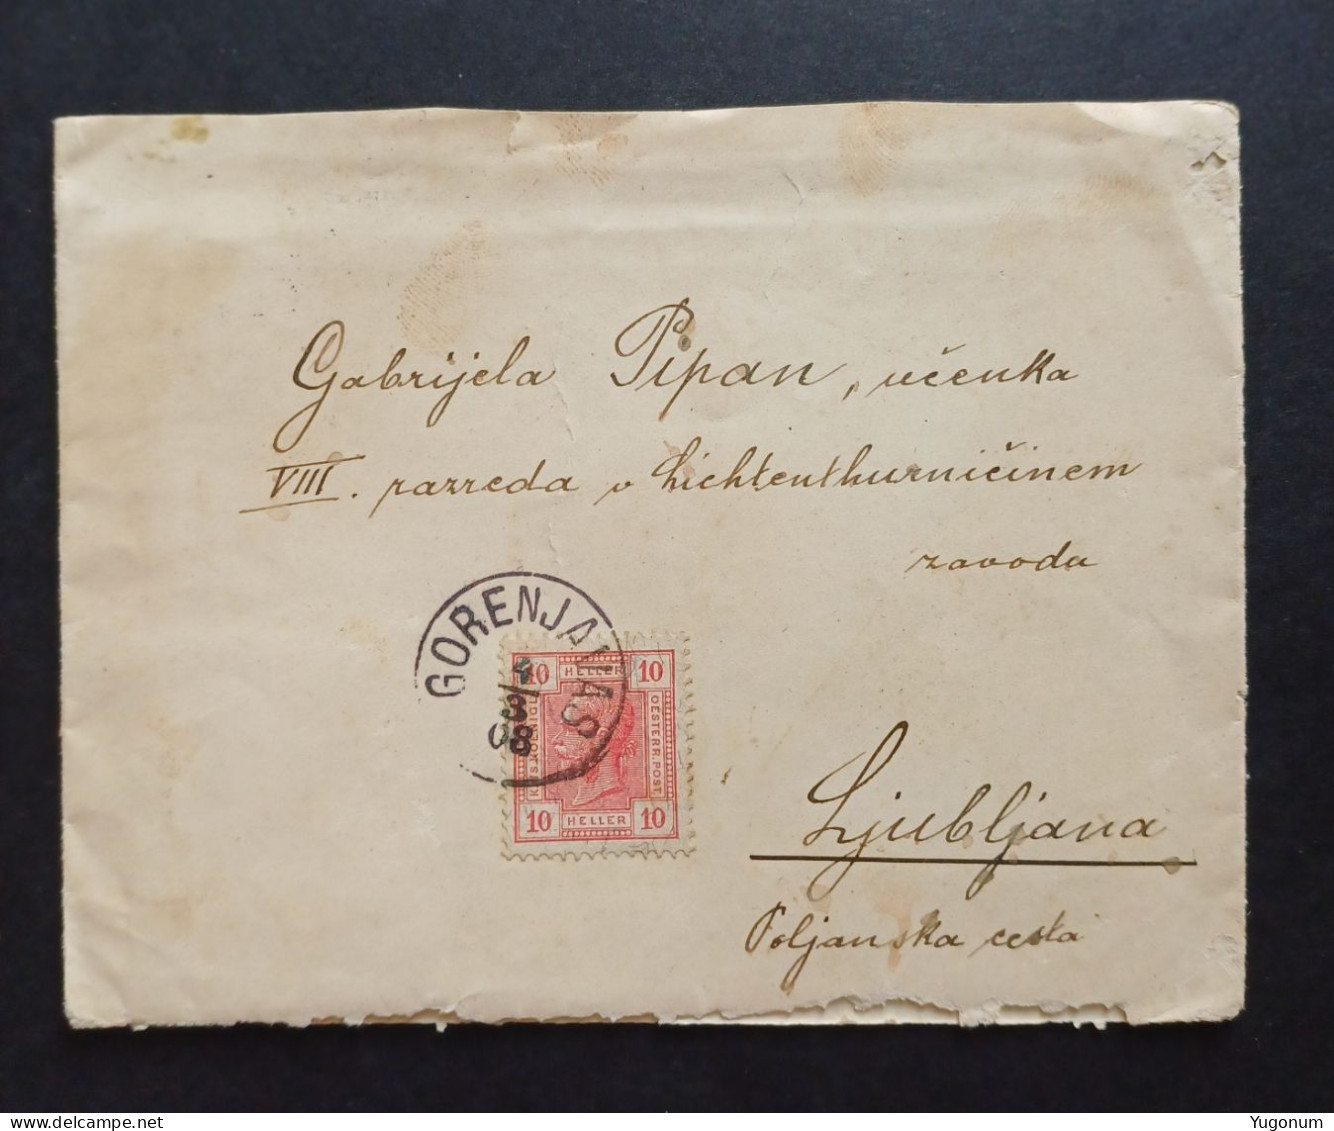 Gabrijela Pipan, učenka
VIII. razreda v Lichtenthurničinem
zavodu
GORENJAVAS
4/3
08
10 HELLER 10
KAIS. KOENIGL.
OESTERR. POST
10 HELLER 10
Ljubljana
Poljanska cesta
Yugonum